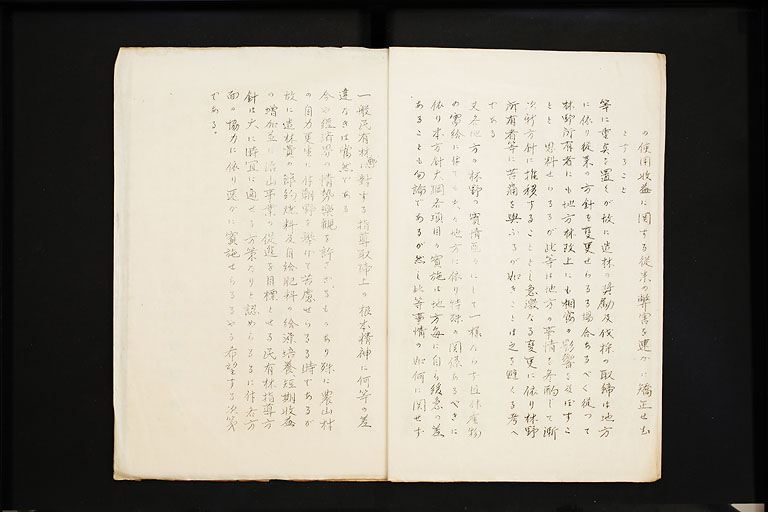 の使用収益に関する従来の弊害を速かに矯正せむ
とすること
等に重点を置くが故に造林の奨励及伐採の取締は地方
に依り従来の方針を変更せらるる場合あるべく従つて
林野所有者にも地方林政上にも相当の影響を及ぼすこ
とと思料せらるるが此等は地方の事情を斟酌して漸
次新方針に推移することとし急激なる変更に依り林野
所有者等に苦痛を与ふるが如きことは之を避くる考へ
である
又各地方の林野の実情区々にして一様ならず且林産物
の需給に付ても亦地方に依り特殊の関係あるべきに
依り本方針大綱各項目の実施は地方毎に自ら緩急の差
あることも勿論であるが然し此等事情の如何に関せず
一般民有林野に対する指導取締上の根本精神に何等の差
違なきは当然である
今や経済界の情勢楽観を許さざるものあり殊に農山村
の自力更生に付朝野を挙げて苦慮せらるる時であるが
故に造林費の節約燃料及自給肥料の給源培養、短期収益
の増加並に治山事業の促進を目標とせる民有林指導方
針は大に時宜に適せる方策なりと認めらるるに付各方
面の協力に依り速かに実施せらるるやう希望する次第
である。